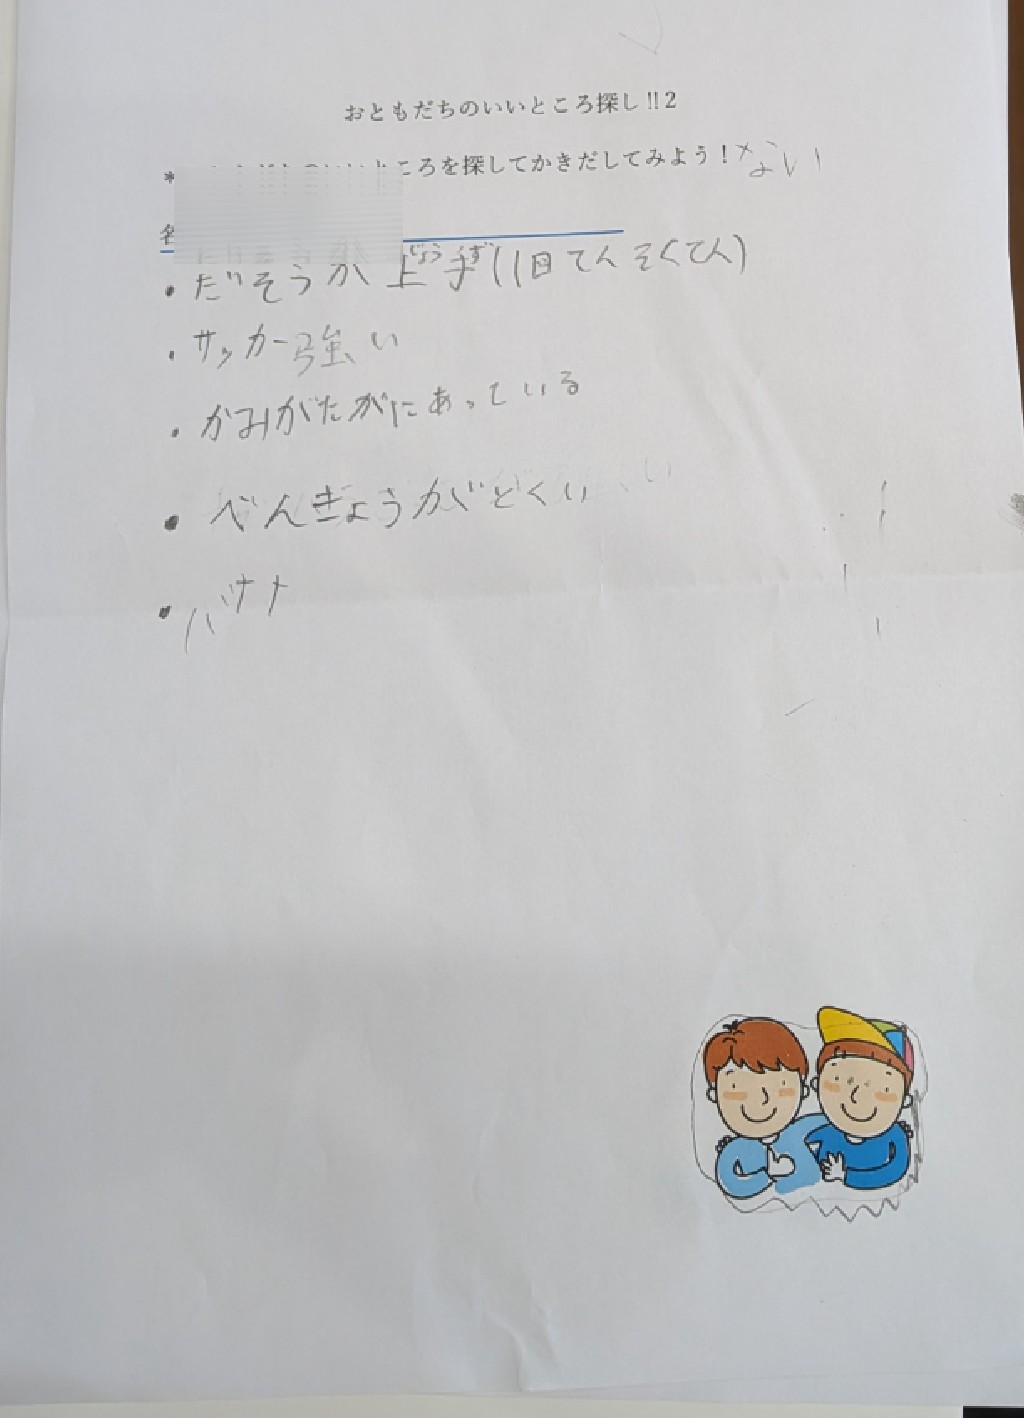 おともだちのいいところ探し!!2
ころを探してかきだしてみよう! ない
・だいそうか上手(1日てんそくてん)
じょうず
・サッカー強い
・かみがたがにあっている
・べんぎょうがどくい
・バナナ